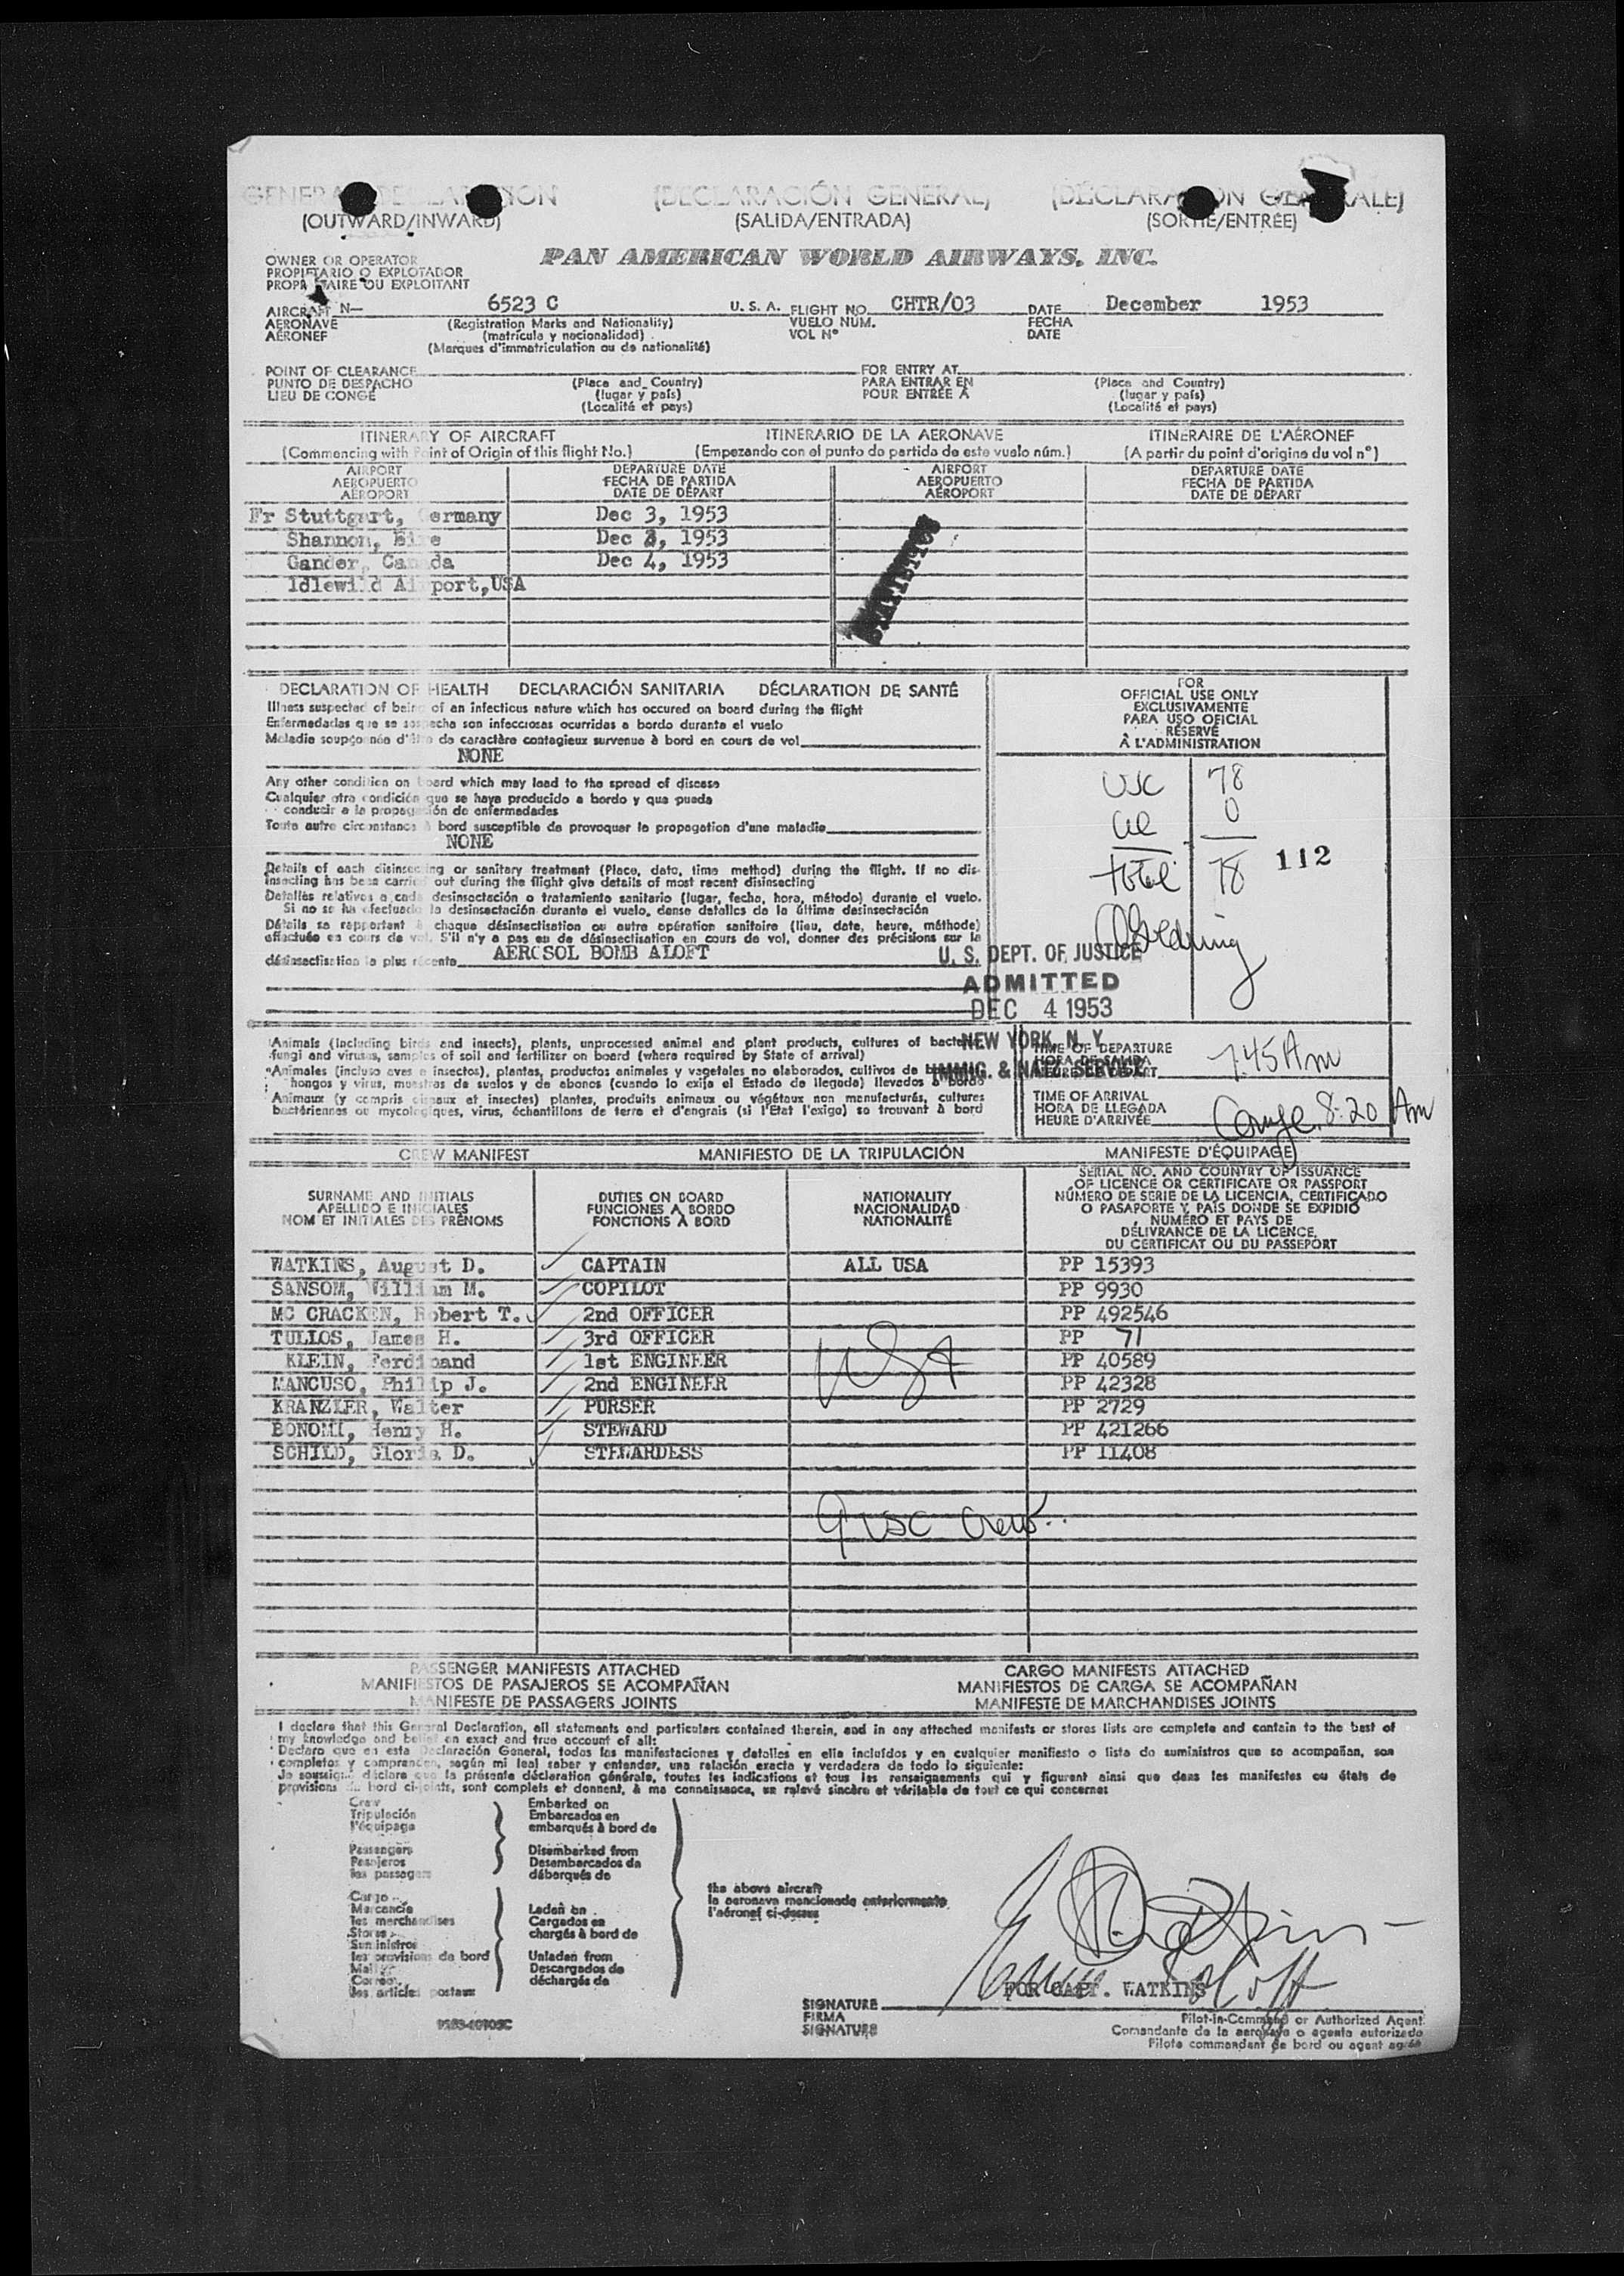 GENERAL DECLARATION (DECLARACIÓN GENERAL) (DÉCLARATION GÉNÉRALE)
(OUTWARD/INWARD) (SALIDA/ENTRADA) (SORTIE/ENTRÉE)
PAN AMERICAN WORLD AIRWAYS, INC.
OWNER OR OPERATOR
PROPIETARIO O EXPLOTADOR
PROPRIÉTAIRE OU EXPLOITANT
AIRCRAFT N— 6523 C U. S. A. FLIGHT NO. CHTR/03 DATE December 1953
AERONAVE (Registration Marks and Nationality) VUELO NÚM. FECHA
AÉRONEF (matrícula y nacionalidad) VOL Nº DATE
(Marques d'immatriculation ou de nationalité)
POINT OF CLEARANCE FOR ENTRY AT
PUNTO DE DESPACHO (Place and Country) PARA ENTRAR EN (Place and Country)
LIEU DE CONGÉ (lugar y país) POUR ENTRÉE À (lugar y país)
(Localité et pays) (Localité et pays)
ITINERARY OF AIRCRAFT ITINERARIO DE LA AERONAVE ITINÉRAIRE DE L'AÉRONEF
(Commencing with Point of Origin of this flight No.) (Empezando con el punto de partida de este vuelo núm.) (A partir du point d'origine du vol nº)
AIRPORT DEPARTURE DATE AIRPORT DEPARTURE DATE
AEROPUERTO FECHA DE PARTIDA AEROPUERTO FECHA DE PARTIDA
AÉROPORT DATE DE DÉPART AÉROPORT DATE DE DÉPART
Fr Stuttgart, Germany Dec 3, 1953
Shannon, Eire Dec 3, 1953
Gander, Canada Dec 4, 1953
Idlewild Airport,USA
DECLARATION OF HEALTH DECLARACIÓN SANITARIA DÉCLARATION DE SANTÉ
Illness suspected of being of an infectious nature which has occured on board during the flight
Enfermedades que se sospecha son infecciosas ocurridas a bordo durante el vuelo
Maladie soupçonnée d'être de caractère contagieux survenue à bord en cours de vol
NONE
Any other condition on board which may lead to the spread of disease
Cualquier otra condición que se haya producido a bordo y que pueda
conducir a la propagación de enfermedades
Toute autre circonstance à bord susceptible de provoquer la propagation d'une maladie
NONE
Details of each disinsecting or sanitary treatment (Place, date, time method) during the flight. If no dis-
insecting has been carried out during the flight give details of most recent disinsecting
Detalles relativos a cada desinsectación o tratamiento sanitario (lugar, fecha, hora, método) durante el vuelo.
Si no se ha efectuado la desinsectación durante el vuelo, dense detalles de la última desinsectación
Détails se rapportant à chaque désinsectisation ou autre opération sanitaire (lieu, date, heure, méthode)
effectuée en cours de vol. S'il n'y a pas eu de désinsectisation en cours de vol, donner des précisions sur la
désinsectisation la plus récente AEROSOL BOMB ALOFT
FOR
OFFICIAL USE ONLY
EXCLUSIVAMENTE
PARA USO OFICIAL
RÉSERVÉ
À L'ADMINISTRATION
USC 78
0
total 78 112
U. S. DEPT. OF JUSTICE
ADMITTED
DEC 4 1953
NEW YORK, N. Y.
IMMIG. & NATZ. SERVICE
Animals (including birds and insects), plants, unprocessed animal and plant products, cultures of bacteria,
fungi and viruses, samples of soil and fertilizer on board (where required by State of arrival)
Animales (incluso aves e insectos), plantas, productos animales y vegetales no elaborados, cultivos de bacterias,
hongos y virus, muestras de suelos y de abonos (cuando lo exija el Estado de llegada) llevados a bordo
Animaux (y compris oiseaux et insectes) plantes, produits animaux ou végétaux non manufacturés, cultures
bactériennes ou mycologiques, virus, échantillons de terre et d'engrais (si l'Etat l'exige) se trouvant à bord
TIME OF DEPARTURE
HORA DE SALIDA
HEURE DE DÉPART 7:45 Am
TIME OF ARRIVAL
HORA DE LLEGADA
HEURE D'ARRIVÉE 8:20 Am
CREW MANIFEST MANIFIESTO DE LA TRIPULACIÓN MANIFESTE D'ÉQUIPAGE
SURNAME AND INITIALS
APELLIDO E INICIALES
NOM ET INITIALES DES PRÉNOMS
DUTIES ON BOARD
FUNCIONES A BORDO
FONCTIONS À BORD
NATIONALITY
NACIONALIDAD
NATIONALITÉ
SERIAL NO. AND COUNTRY OF ISSUANCE
OF LICENCE OR CERTIFICATE OR PASSPORT
NÚMERO DE SERIE DE LA LICENCIA, CERTIFICADO
O PASAPORTE Y PAÍS DONDE SE EXPIDIÓ
NUMÉRO ET PAYS DE
DÉLIVRANCE DE LA LICENCE,
DU CERTIFICAT OU DU PASSEPORT
WATKINS, August D. CAPTAIN ALL USA PP 15393
SANSOM, William M. COPILOT PP 9930
MC CRACKEN, Robert T. 2nd OFFICER PP 492546
TULLOS, James H. 3rd OFFICER PP 71
KLEIN, Ferdinand 1st ENGINEER PP 40589
MANCUSO, Philip J. 2nd ENGINEER PP 42328
KRANZLER, Walter PURSER PP 2729
BONOMI, Henry H. STEWARD PP 421266
SCHILD, Gloria D. STEWARDESS PP 11408
USA
9 USC Crew
PASSENGER MANIFESTS ATTACHED CARGO MANIFESTS ATTACHED
MANIFIESTOS DE PASAJEROS SE ACOMPAÑAN MANIFIESTOS DE CARGA SE ACOMPAÑAN
MANIFESTE DE PASSAGERS JOINTS MANIFESTE DE MARCHANDISES JOINTS
I declare that this General Declaration, all statements and particulars contained therein, and in any attached manifests or stores lists are complete and contain to the best of
my knowledge and belief an exact and true account of all:
Declaro que en esta Declaración General, todas las manifestaciones y detalles en ella incluídos y en cualquier manifiesto o lista de suministros que se acompañan, son
completos y comprenden, según mi leal saber y entender, una relación exacta y verdadera de todo lo siguiente:
Je soussigné déclare que la présente déclaration générale, toutes les indications et tous les renseignements qui y figurent ainsi que dans les manifestes ou états de
provisions de bord ci-joints, sont complets et donnent, à ma connaissance, un relevé sincère et véritable de tout ce qui concerne:
Crew Embarked on
Tripulación Embarcados en
l'équipage embarqués à bord de
Passengers Disembarked from
Pasajeros Desembarcados de
les passagers débarqués de
Cargo
Mercancía Laden on
les merchandises Cargados en
Stores chargés à bord de
Suministros
les provisions de bord Unladen from
Mail Descargados de
Correo déchargés de
les articles postaux
the above aircraft
la aeronave mencionada anteriormente
l'aéronef ci-dessus
FOR CAPT. WATKINS
SIGNATURE
FIRMA
SIGNATURE
Pilot-in-Command or Authorized Agent
Comandante de la aeronave o agente autorizado
Pilote commandant de bord ou agent agréé